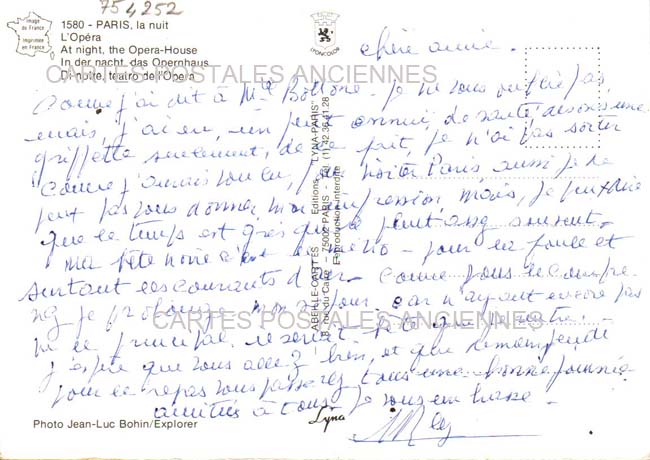 754252
Image de France
Imprimée en France
1580 - PARIS, la nuit
L'Opéra
At night, the Opera-House
In der nacht, das Opernhaus
Di notte, teatro de l'Opera
LYONCOLOR
chère amie.
CARTES POSTALES ANCIENNES
Comme j'ai dit à Je ne vous oublie pas,
mais, j'ai eu, un petit ennui, de santé disons une
grippette seulement, de ce fait, je n'ai pas sortir
Comme j'aurais voulu, visiter Paris, aussi je ne
peux pas vous donner, mon impression, mais, je peux dire
que le temps est gris qu'il pleut assez souvent.
Ma bête noire c'est le métro - pour la foule et
surtout les courants d'air - comme vous le
je prolonge mon séjour, car n'ayant encore pas
vu le principal.
CARTES POSTALES ANCIENNES
j'espère que vous allez bien, et que
pour le repas vous passerez tous une bonne journée
amitiés à tous - Je vous embrasse -
ABEILLE-CARTES Editions "LYNA-PARIS"
8, rue du Caire - 75002 PARIS - Tél. (1) 42.36.41.28
Reproduction interdite
Photo Jean-Luc Bohin/Explorer
Lyna